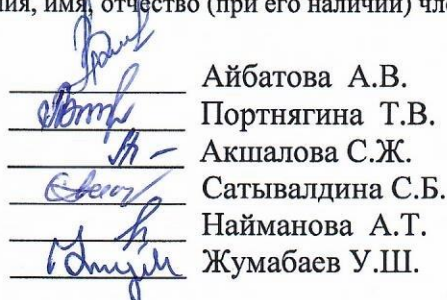 имя, отчество (при его наличии)
Айбатова А.В.
Портнягина Т.В.
Акшалова С.Ж.
Сатывалдина С.Б.
Найманова А.Т.
Жумабаев У.Ш.